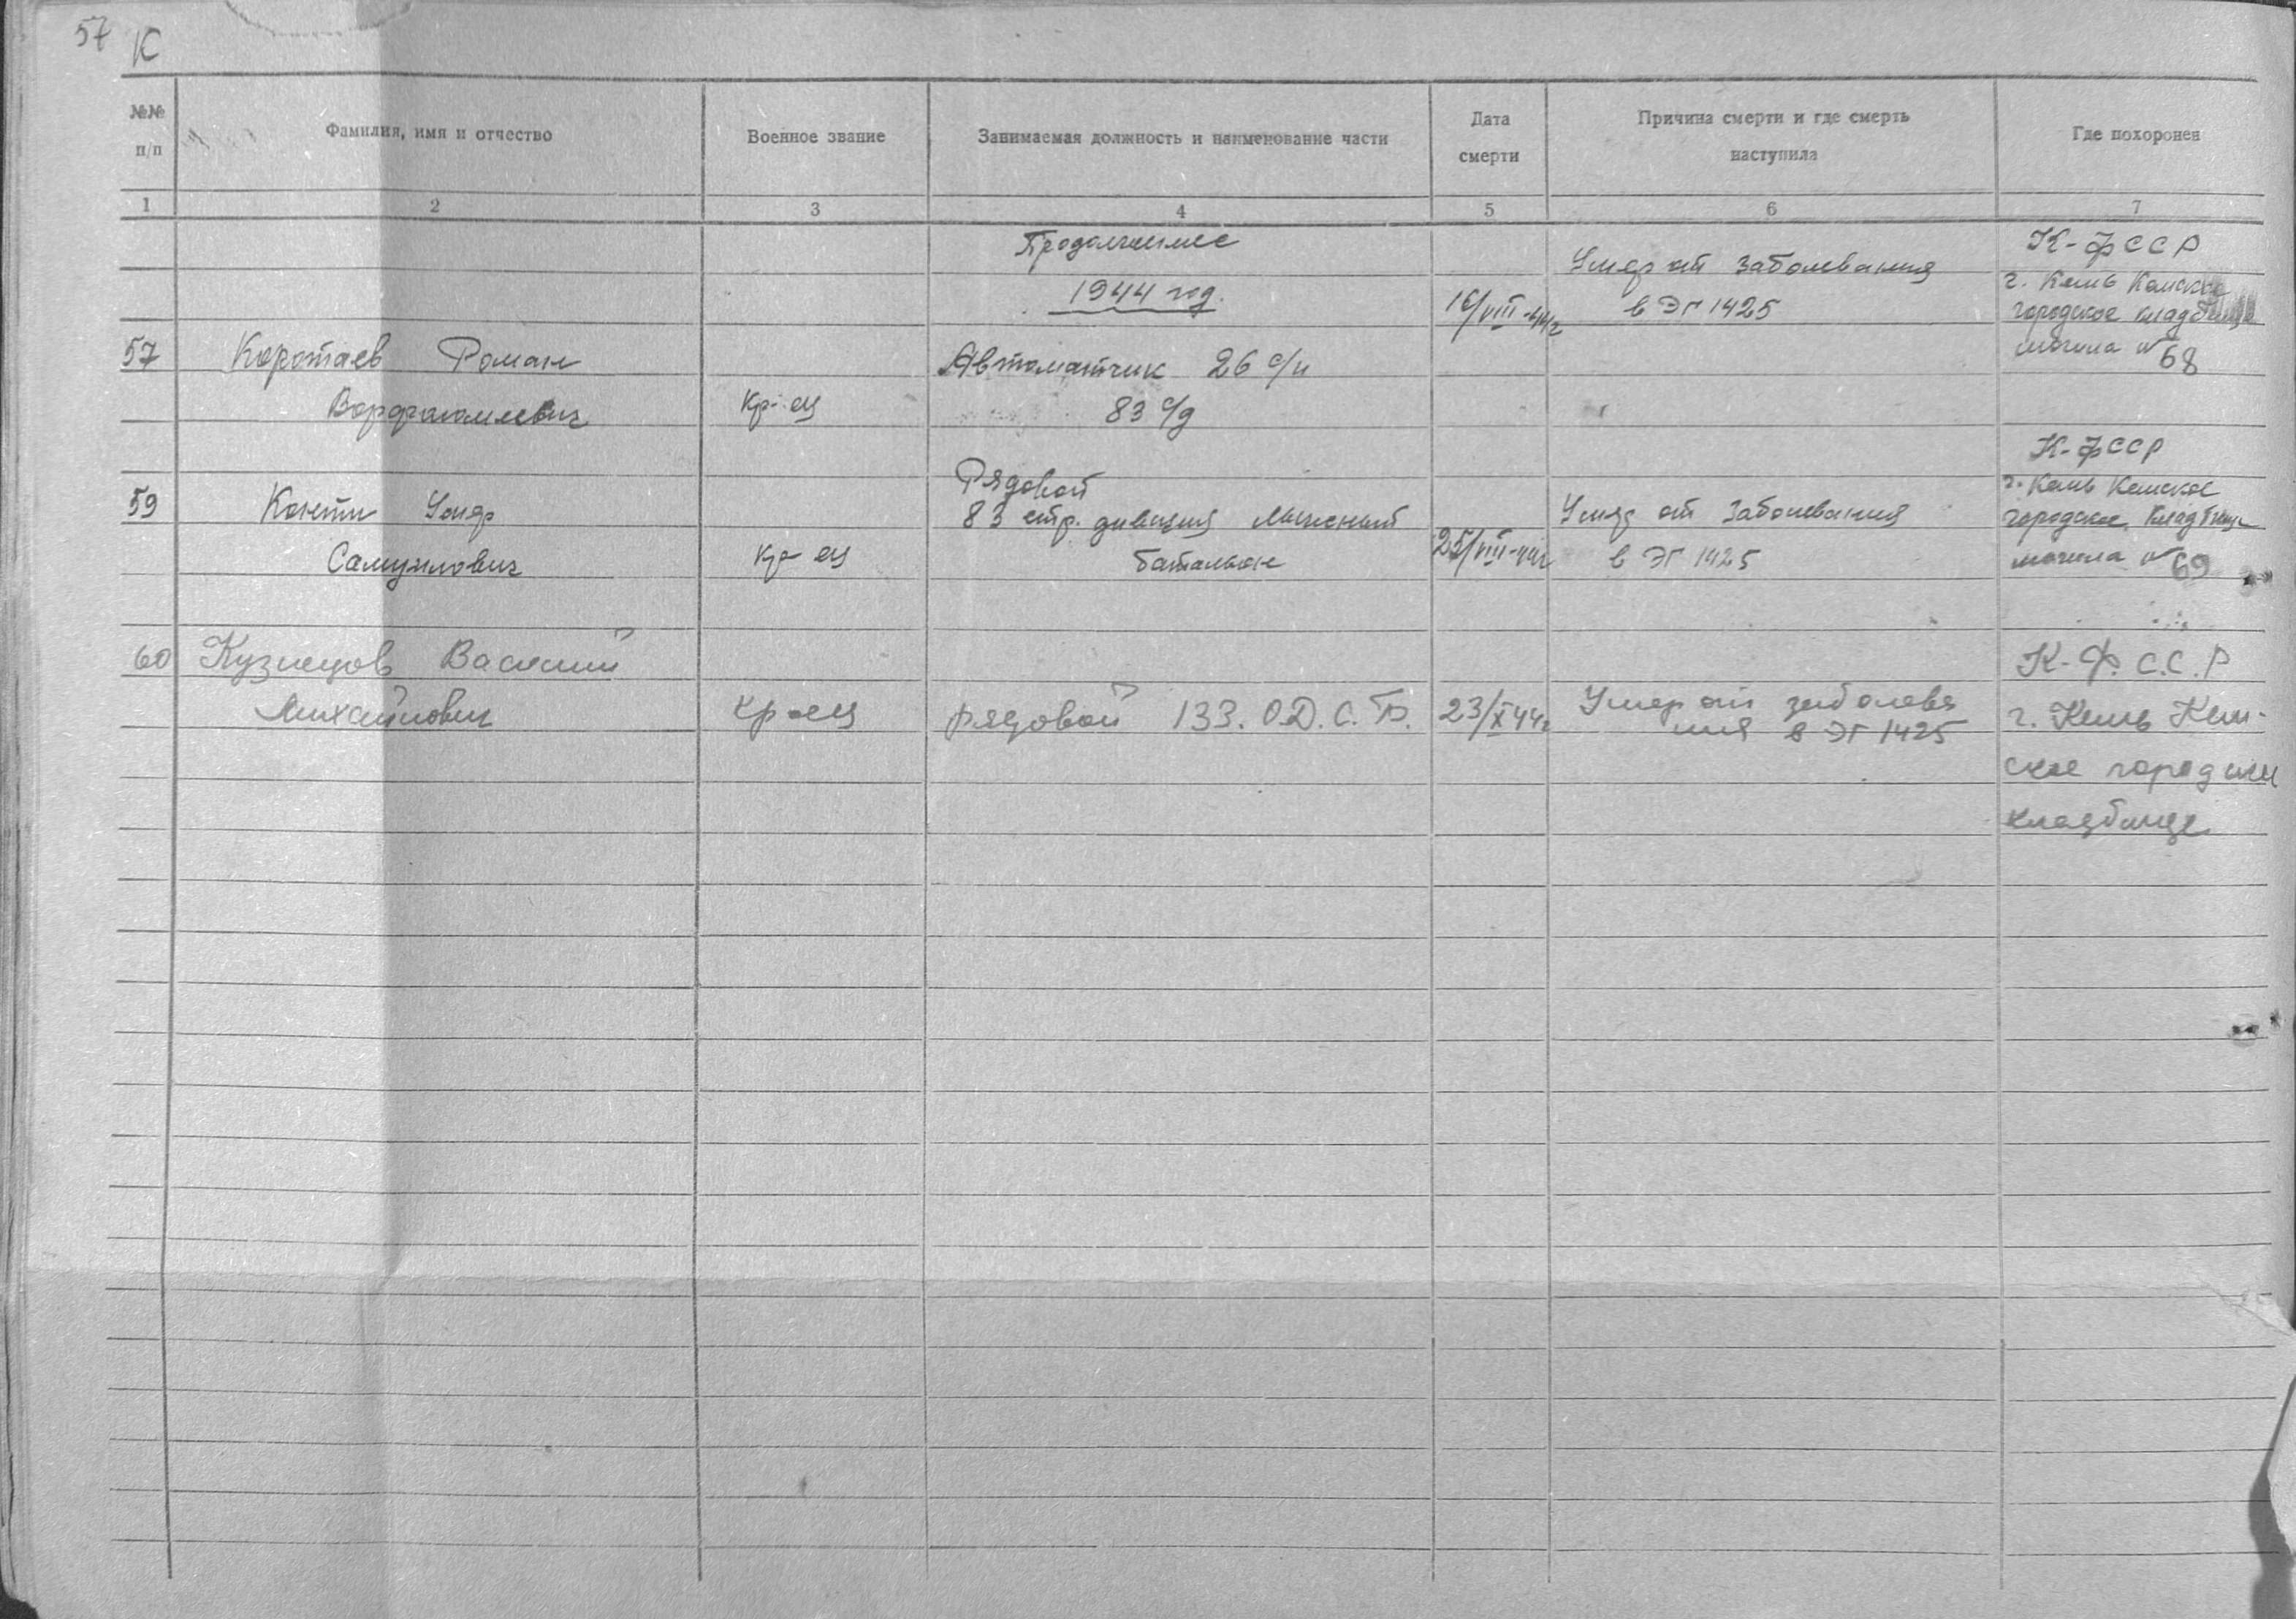 57 К
№№ п/п
Фамилия, имя и отчество
Военное звание
Занимаемая должность и наименование части
Дата смерти
Причина смерти и где смерть наступила
Где похоронен
1 2 3 4 5 6 7
Продолжение
1944 год.
57
Коротаев Роман
Варфаломеевич
Кр-ец
Автоматчик 26 с/п
83 с/д
16/VIII-44г
Умер от заболевания
в ЭГ 1425
К-ФССР
г. Кемь Кемское
городское кладбище
могила № 68
59
Самуилович
кр-ец
Рядовой
83 стр. дивизия Лыжный
батальон
25/VIII-44г
Умер от заболевания
в ЭГ 1425
К-ФССР
г. Кемь Кемское
городское кладбище
могила № 69
60
Кузнецов Василий
Михайлович
кр-ец
рядовой 133. О.Д.С.Б.
23/X 44г
Умер от заболева
ния в ЭГ 1425
К-Ф. С.С.Р
г. Кемь Кем-
ское
кладбище